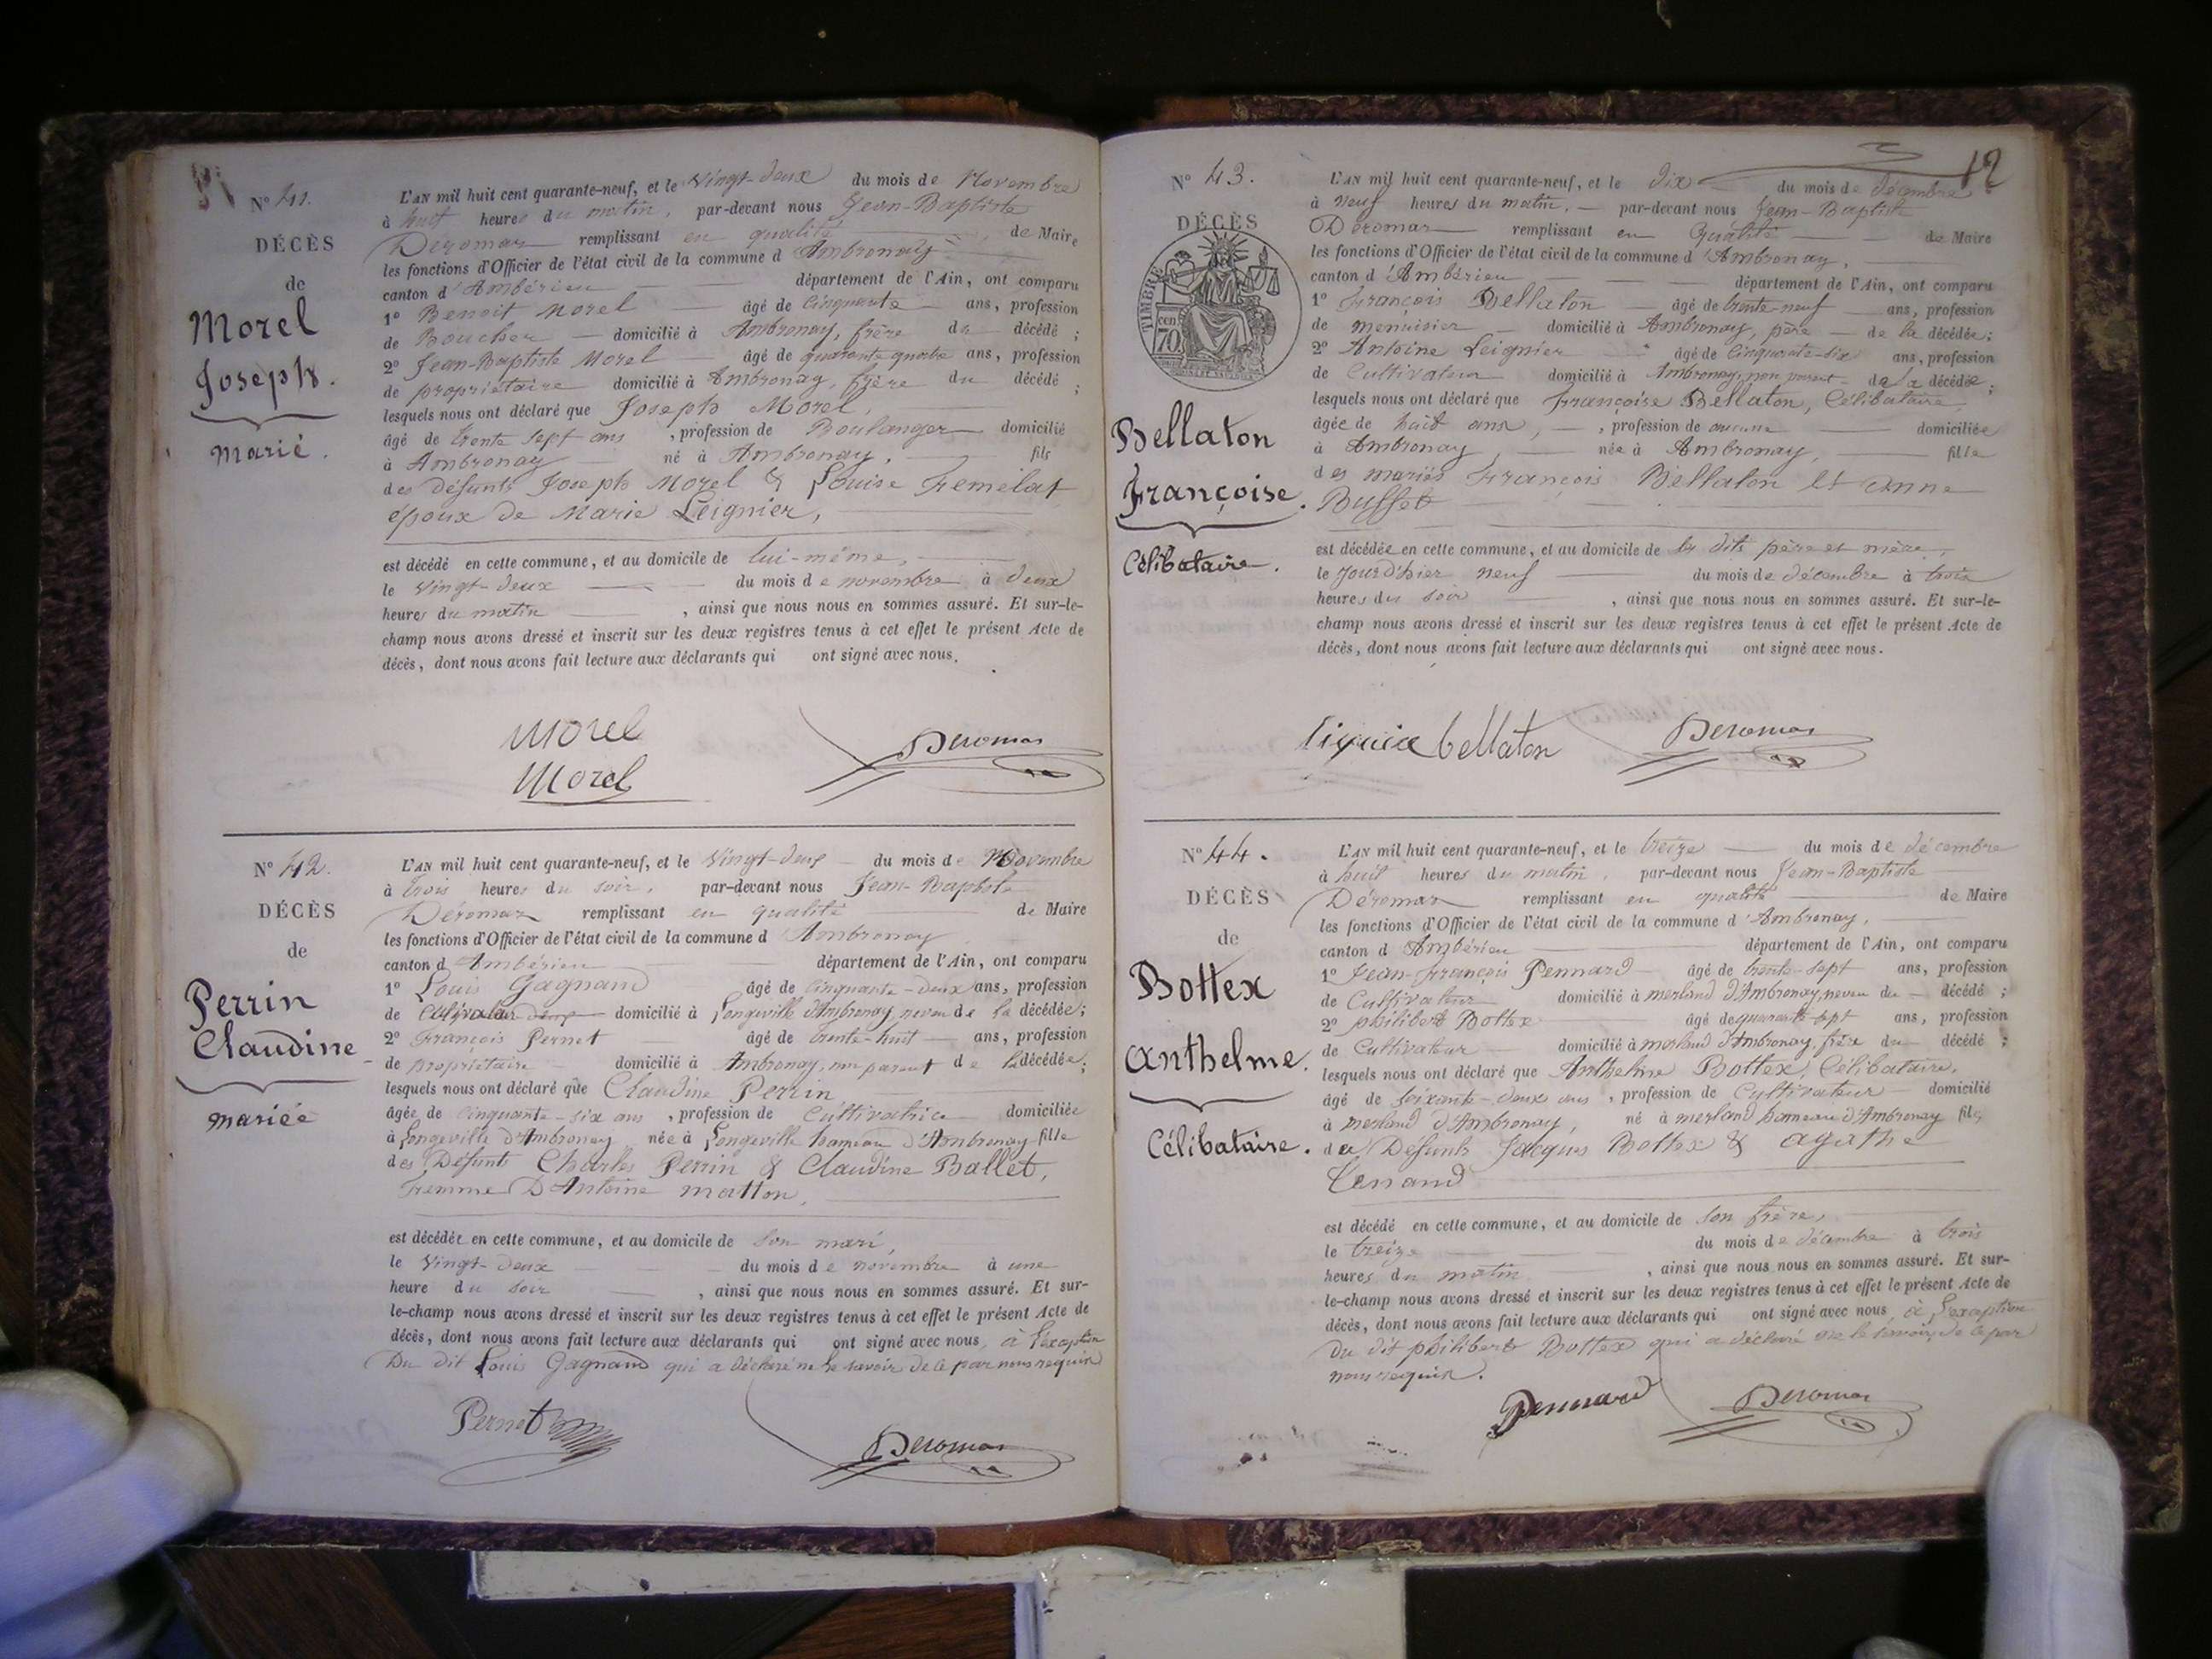 N° 41.
DÉCÈS
de
Morel
Joseph.
Marié.
L'AN mil huit cent quarante-neuf, et le Vingt-deux du mois de Novembre
à huit heures du matin, par-devant nous Jean-Baptiste
Deromas remplissant en qualité de Maire
les fonctions d'Officier de l'état civil de la commune d'Ambronay
canton d'Ambérieu département de l'Ain, ont comparu
1° Benoit Morel âgé de Cinquante ans, profession
de Boucher domicilié à Ambronay, frère du décédé ;
2° Jean-Baptiste Morel âgé de quarante quatre ans, profession
de propriétaire domicilié à Ambronay, frère du décédé ;
lesquels nous ont déclaré que Joseph Morel,
âgé de trente sept ans, profession de Boulanger domicilié
à Ambronay né à Ambronay, fils
des défunts Joseph Morel & Louise Femelat
époux de Marie Leignier,
est décédé en cette commune, et au domicile de lui-même,
le Vingt-deux du mois de novembre à deux
heures du matin, ainsi que nous nous en sommes assuré. Et sur-le-
champ nous avons dressé et inscrit sur les deux registres tenus à cet effet le présent Acte de
décès, dont nous avons fait lecture aux déclarants qui ont signé avec nous.
Morel
Morel
Deromas
N° 42.
DÉCÈS
de
Perrin
Claudine
Mariée
L'AN mil huit cent quarante-neuf, et le Vingt-deux du mois de Novembre
à trois heures du soir, par-devant nous Jean-Baptiste
Déromas remplissant en qualité de Maire
les fonctions d'Officier de l'état civil de la commune d'Ambronay
canton d'Ambérieu département de l'Ain, ont comparu
1° Louis Gagnand âgé de Cinquante-deux ans, profession
de Cultivateur domicilié à Longeville d'Ambronay, neveu de la décédée ;
2° François Pernet âgé de trente-huit ans, profession
de propriétaire domicilié à Ambronay, non parent de la décédée ;
lesquels nous ont déclaré que Claudine Perrin
âgée de cinquante-six ans, profession de Cultivatrice domiciliée
à Longeville d'Ambronay née à Longeville hameau d'Ambronay fille
des Défunts Charles Perrin & Claudine Ballet,
Femme D'Antoine Matton,
est décédée en cette commune, et au domicile de Son mari,
le Vingt-deux du mois de novembre à une
heure du soir, ainsi que nous nous en sommes assuré. Et sur-
le-champ nous avons dressé et inscrit sur les deux registres tenus à cet effet le présent Acte de
décès, dont nous avons fait lecture aux déclarants qui ont signé avec nous, à l'exception
Du dit Louis Gagnand qui a déclaré ne le savoir de ce par nous requis
Pernet
Deromas
12
N° 43.
DÉCÈS
TIMBRE
70 cen
Bellaton
Françoise.
Célibataire.
L'AN mil huit cent quarante-neuf, et le dix du mois de décembre
à neuf heures du matin, par-devant nous Jean-Baptiste
Déromas remplissant en qualité de Maire
les fonctions d'Officier de l'état civil de la commune d'Ambronay,
canton d'Ambérieu département de l'Ain, ont comparu
1° François Bellaton âgé de trente-neuf ans, profession
de menuisier domicilié à Ambronay, père de la décédée ;
2° Antoine Leignier âgé de Cinquante-six ans, profession
de Cultivateur domicilié à Ambronay, non parent de la décédée ;
lesquels nous ont déclaré que Françoise Bellaton, Célibataire,
âgée de huit ans, profession de aucune domiciliée
à Ambronay, née à Ambronay, fille
des mariés François Bellaton et anne
Buffet
est décédée en cette commune, et au domicile de les dits père et mère,
le Jour d'hier neuf du mois de décembre à trois
heures du soir, ainsi que nous nous en sommes assuré. Et sur-le-
champ nous avons dressé et inscrit sur les deux registres tenus à cet effet le présent Acte de
décès, dont nous avons fait lecture aux déclarants qui ont signé avec nous.
bellaton
Deromas
N° 44.
DÉCÈS
de
Bottex
Anthelme.
Célibataire.
L'AN mil huit cent quarante-neuf, et le treize du mois de décembre
à huit heures du matin, par-devant nous Jean-Baptiste
Déromas remplissant en qualité de Maire
les fonctions d'Officier de l'état civil de la commune d'Ambronay,
canton d'Ambérieu département de l'Ain, ont comparu
1° Jean-François Pennard âgé de trente-sept ans, profession
de Cultivateur domicilié à merland d'Ambronay, neveu du décédé ;
2° philibert Bottex âgé de quarante sept ans, profession
de Cultivateur domicilié à merland d'Ambronay, frère du décédé ;
lesquels nous ont déclaré que Anthelme Bottex, Célibataire,
âgé de soixante-deux ans, profession de Cultivateur domicilié
à merland d'Ambronay, né à merland hameau d'Ambronay fils
des Défunts Jacques Bottex & agathe
est décédé en cette commune, et au domicile de son frère,
le treize du mois de décembre à trois
heures du matin, ainsi que nous nous en sommes assuré. Et sur-
le-champ nous avons dressé et inscrit sur les deux registres tenus à cet effet le présent Acte de
décès, dont nous avons fait lecture aux déclarants qui ont signé avec nous, à l'exception
du dit philibert Bottex qui a déclaré ne le savoir, de ce par
nous requis.
Pennard
Deromas